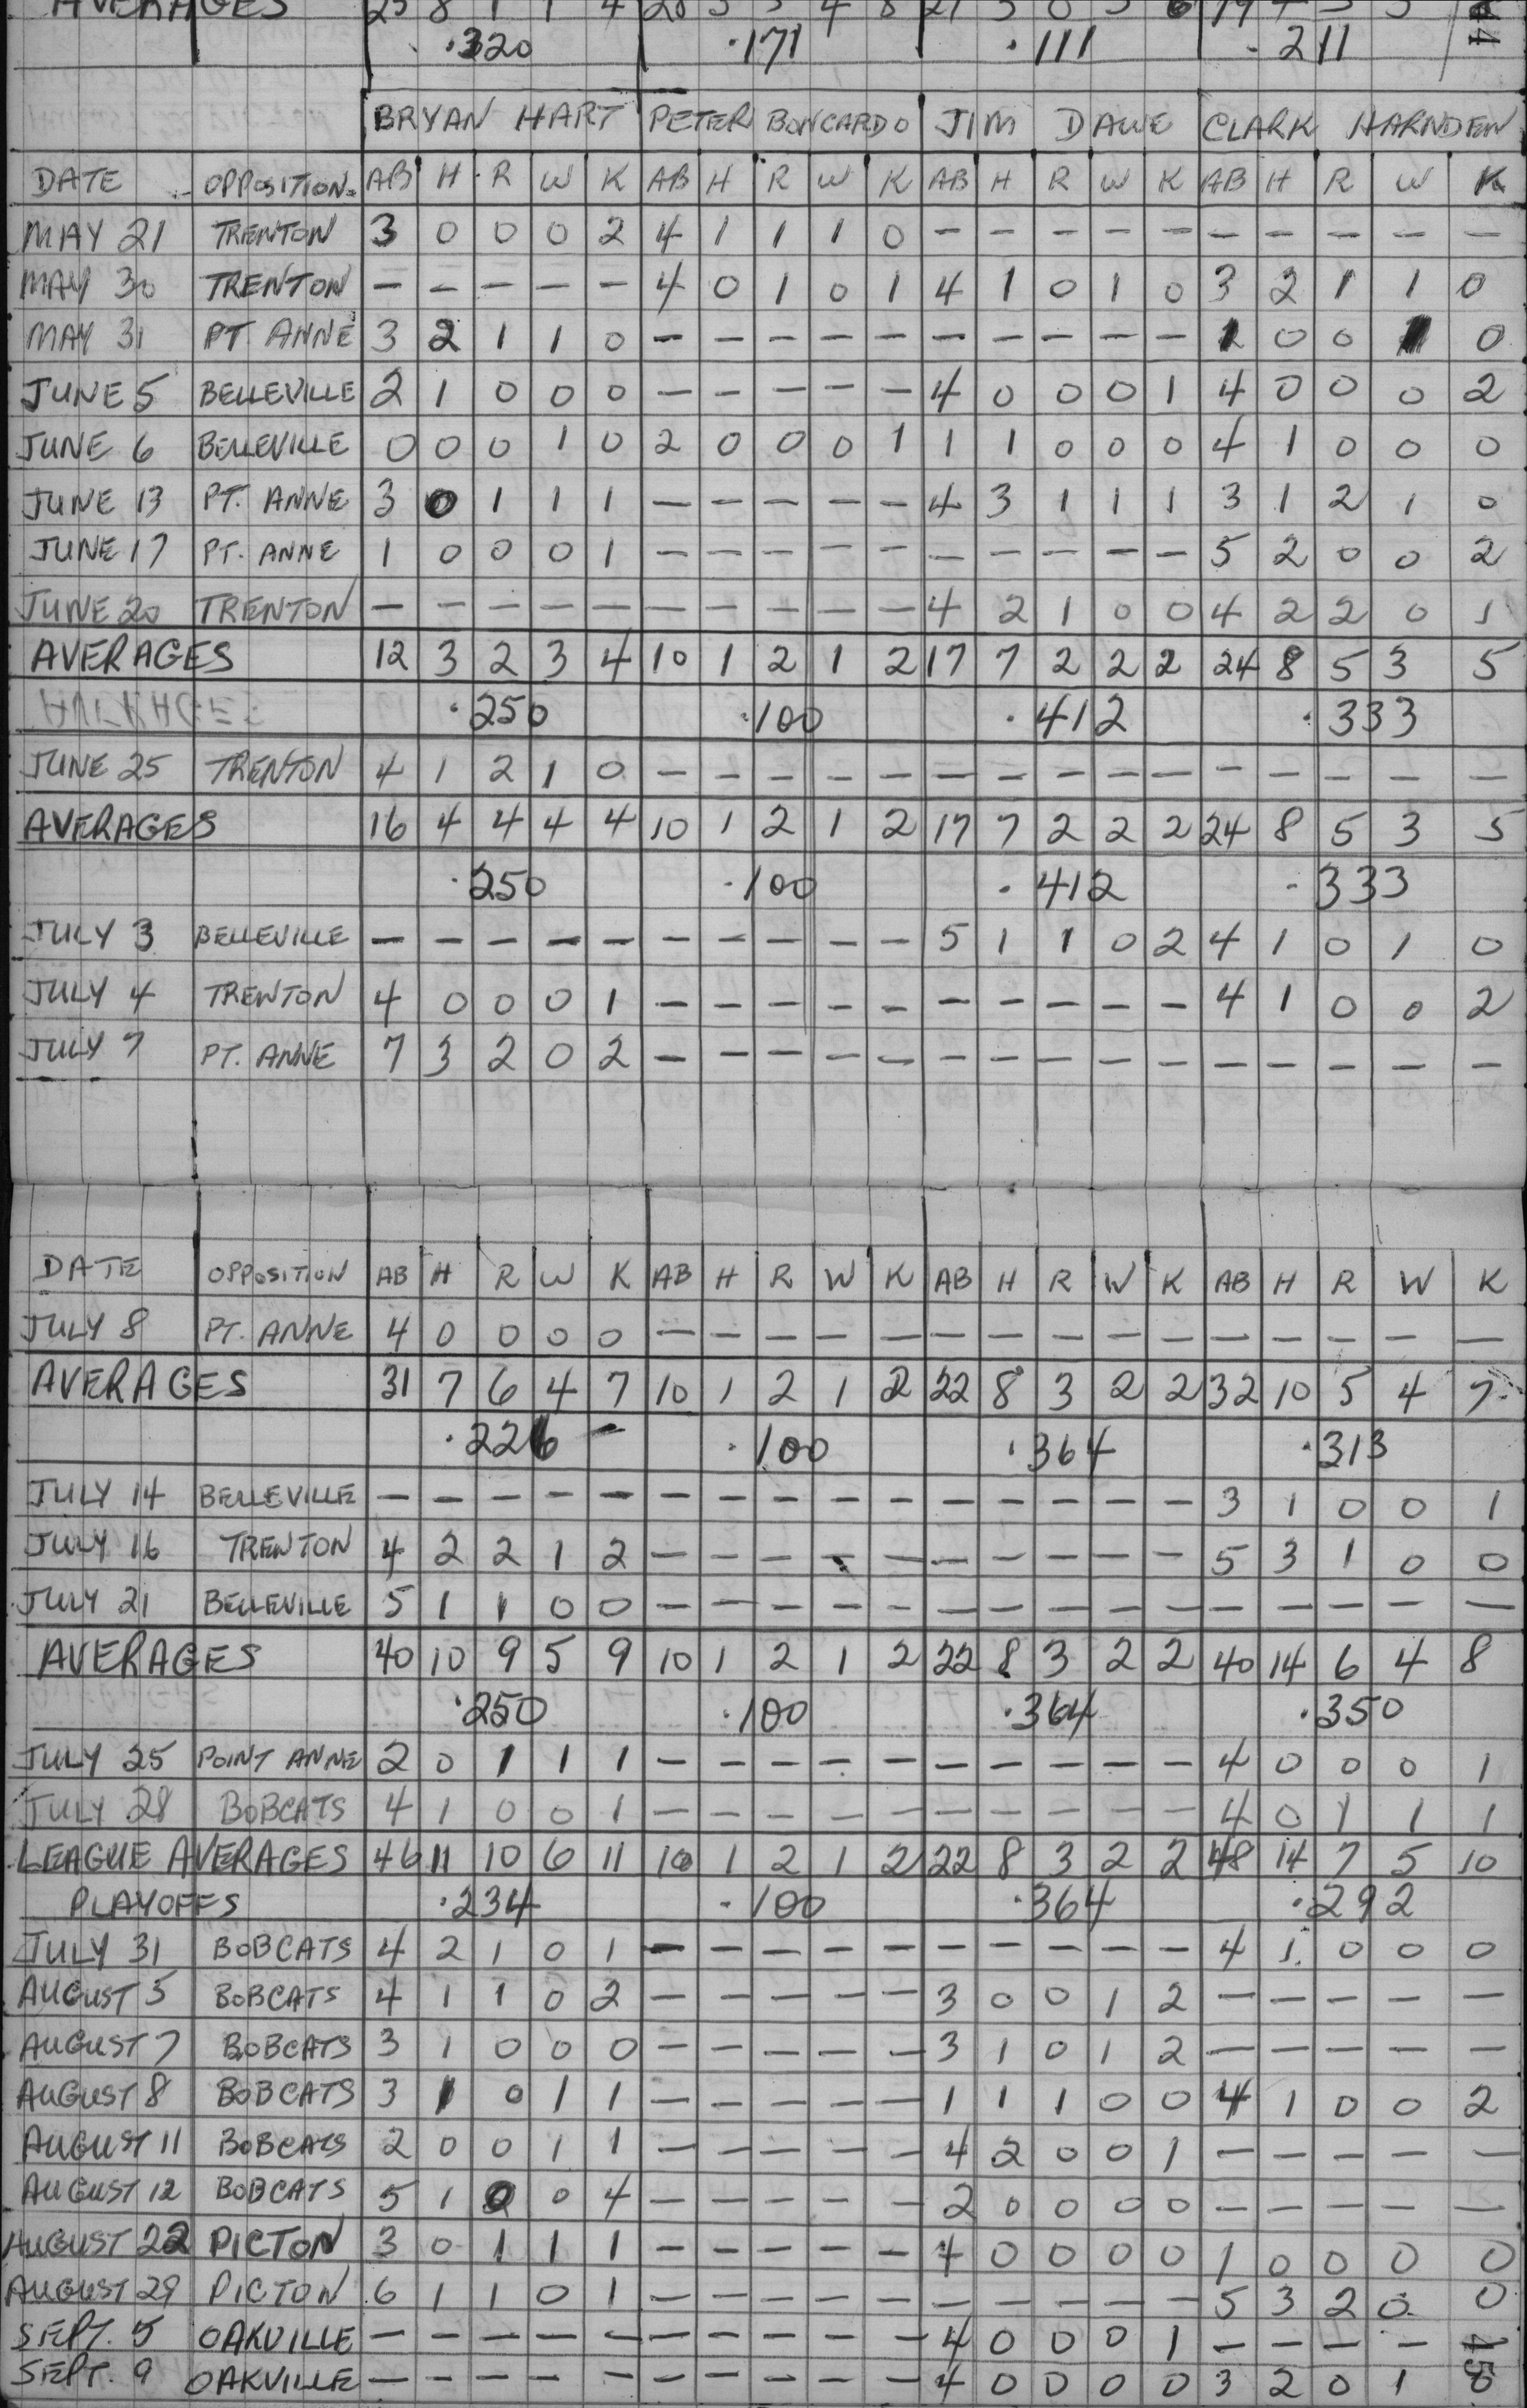 AVERAGES 25 8 1 1 4 4 8 21 6 19
.320 .171 .111 .211 44
BRYAN HART PETER BONCARDO JIM DAWE CLARK HARNDEN
DATE OPPOSITION AB H R W K AB H R W K AB H R W K AB H R W K
MAY 21 TRENTON 3 0 0 0 2 4 1 1 1 0 – – – – – – – – – –
MAY 30 TRENTON – – – – – 4 0 1 0 1 4 1 0 1 0 3 2 1 1 0
MAY 31 PT ANNE 3 2 1 1 0 – – – – – – – – – – 1 0 0 1 0
JUNE 5 BELLEVILLE 2 1 0 0 0 – – – – – 4 0 0 0 1 4 0 0 0 2
JUNE 6 BELLEVILLE 0 0 0 1 0 2 0 0 0 1 1 1 0 0 0 4 1 0 0 0
JUNE 13 PT. ANNE 3 0 1 1 1 – – – – – 4 3 1 1 1 3 1 2 1 0
JUNE 17 PT. ANNE 1 0 0 0 1 – – – – – – – – – – 5 2 0 0 2
JUNE 20 TRENTON – – – – – – – – – – 4 2 1 0 0 4 2 2 0 1
AVERAGES 12 3 2 3 4 10 1 2 1 2 17 7 2 2 2 24 8 5 3 5
.250 .100 .412 .333
JUNE 25 TRENTON 4 1 2 1 0 – – – – – – – – – – – – – – –
AVERAGES 16 4 4 4 4 10 1 2 1 2 17 7 2 2 2 24 8 5 3 5
.250 .100 .412 .333
JULY 3 BELLEVILLE – – – – – – – – – – 5 1 1 0 2 4 1 0 1 0
JULY 4 TRENTON 4 0 0 0 1 – – – – – – – – – – 4 1 0 0 2
JULY 7 PT. ANNE 7 3 2 0 2 – – – – – – – – – – – – – – –
DATE OPPOSITION AB H R W K AB H R W K AB H R W K AB H R W K
JULY 8 PT. ANNE 4 0 0 0 0 – – – – – – – – – – – – – – –
AVERAGES 31 7 6 4 7 10 1 2 1 2 22 8 3 2 2 32 10 5 4 7
.226 .100 .364 .313
JULY 14 BELLEVILLE – – – – – – – – – – – – – – – 3 1 0 0 1
JULY 16 TRENTON 4 2 2 1 2 – – – – – – – – – – 5 3 1 0 0
JULY 21 BELLEVILLE 5 1 1 0 0 – – – – – – – – – – – – – – –
AVERAGES 40 10 9 5 9 10 1 2 1 2 22 8 3 2 2 40 14 6 4 8
.250 .100 .364 .350
JULY 25 POINT ANNE 2 0 1 1 1 – – – – – – – – – – 4 0 0 0 1
JULY 28 BOBCATS 4 1 0 0 1 – – – – – – – – – – 4 0 1 1 1
LEAGUE AVERAGES 46 11 10 6 11 10 1 2 1 2 22 8 3 2 2 48 14 7 5 10
PLAYOFFS .234 .100 .364 .292
JULY 31 BOBCATS 4 2 1 0 1 – – – – – – – – – – 4 1 0 0 0
AUGUST 5 BOBCATS 4 1 1 0 2 – – – – – 3 0 0 1 2 – – – – –
AUGUST 7 BOBCATS 3 1 0 0 0 – – – – – 3 1 0 1 2 – – – – –
AUGUST 8 BOBCATS 3 1 0 1 1 – – – – – 1 1 1 0 0 4 1 0 0 2
AUGUST 11 BOBCATS 2 0 0 1 1 – – – – – 4 2 0 0 1 – – – – –
AUGUST 12 BOBCATS 5 1 0 0 4 – – – – – 2 0 0 0 0 – – – – –
AUGUST 22 PICTON 3 0 1 1 1 – – – – – 4 0 0 0 0 1 0 0 0 0
AUGUST 29 PICTON 6 1 1 0 1 – – – – – – – – – – 5 3 2 0 0
SEPT. 5 OAKVILLE – – – – – – – – – – 4 0 0 0 1 – – – –
SEPT. 9 OAKVILLE – – – – – – – – – – 4 0 0 0 0 3 2 0 1 0
45